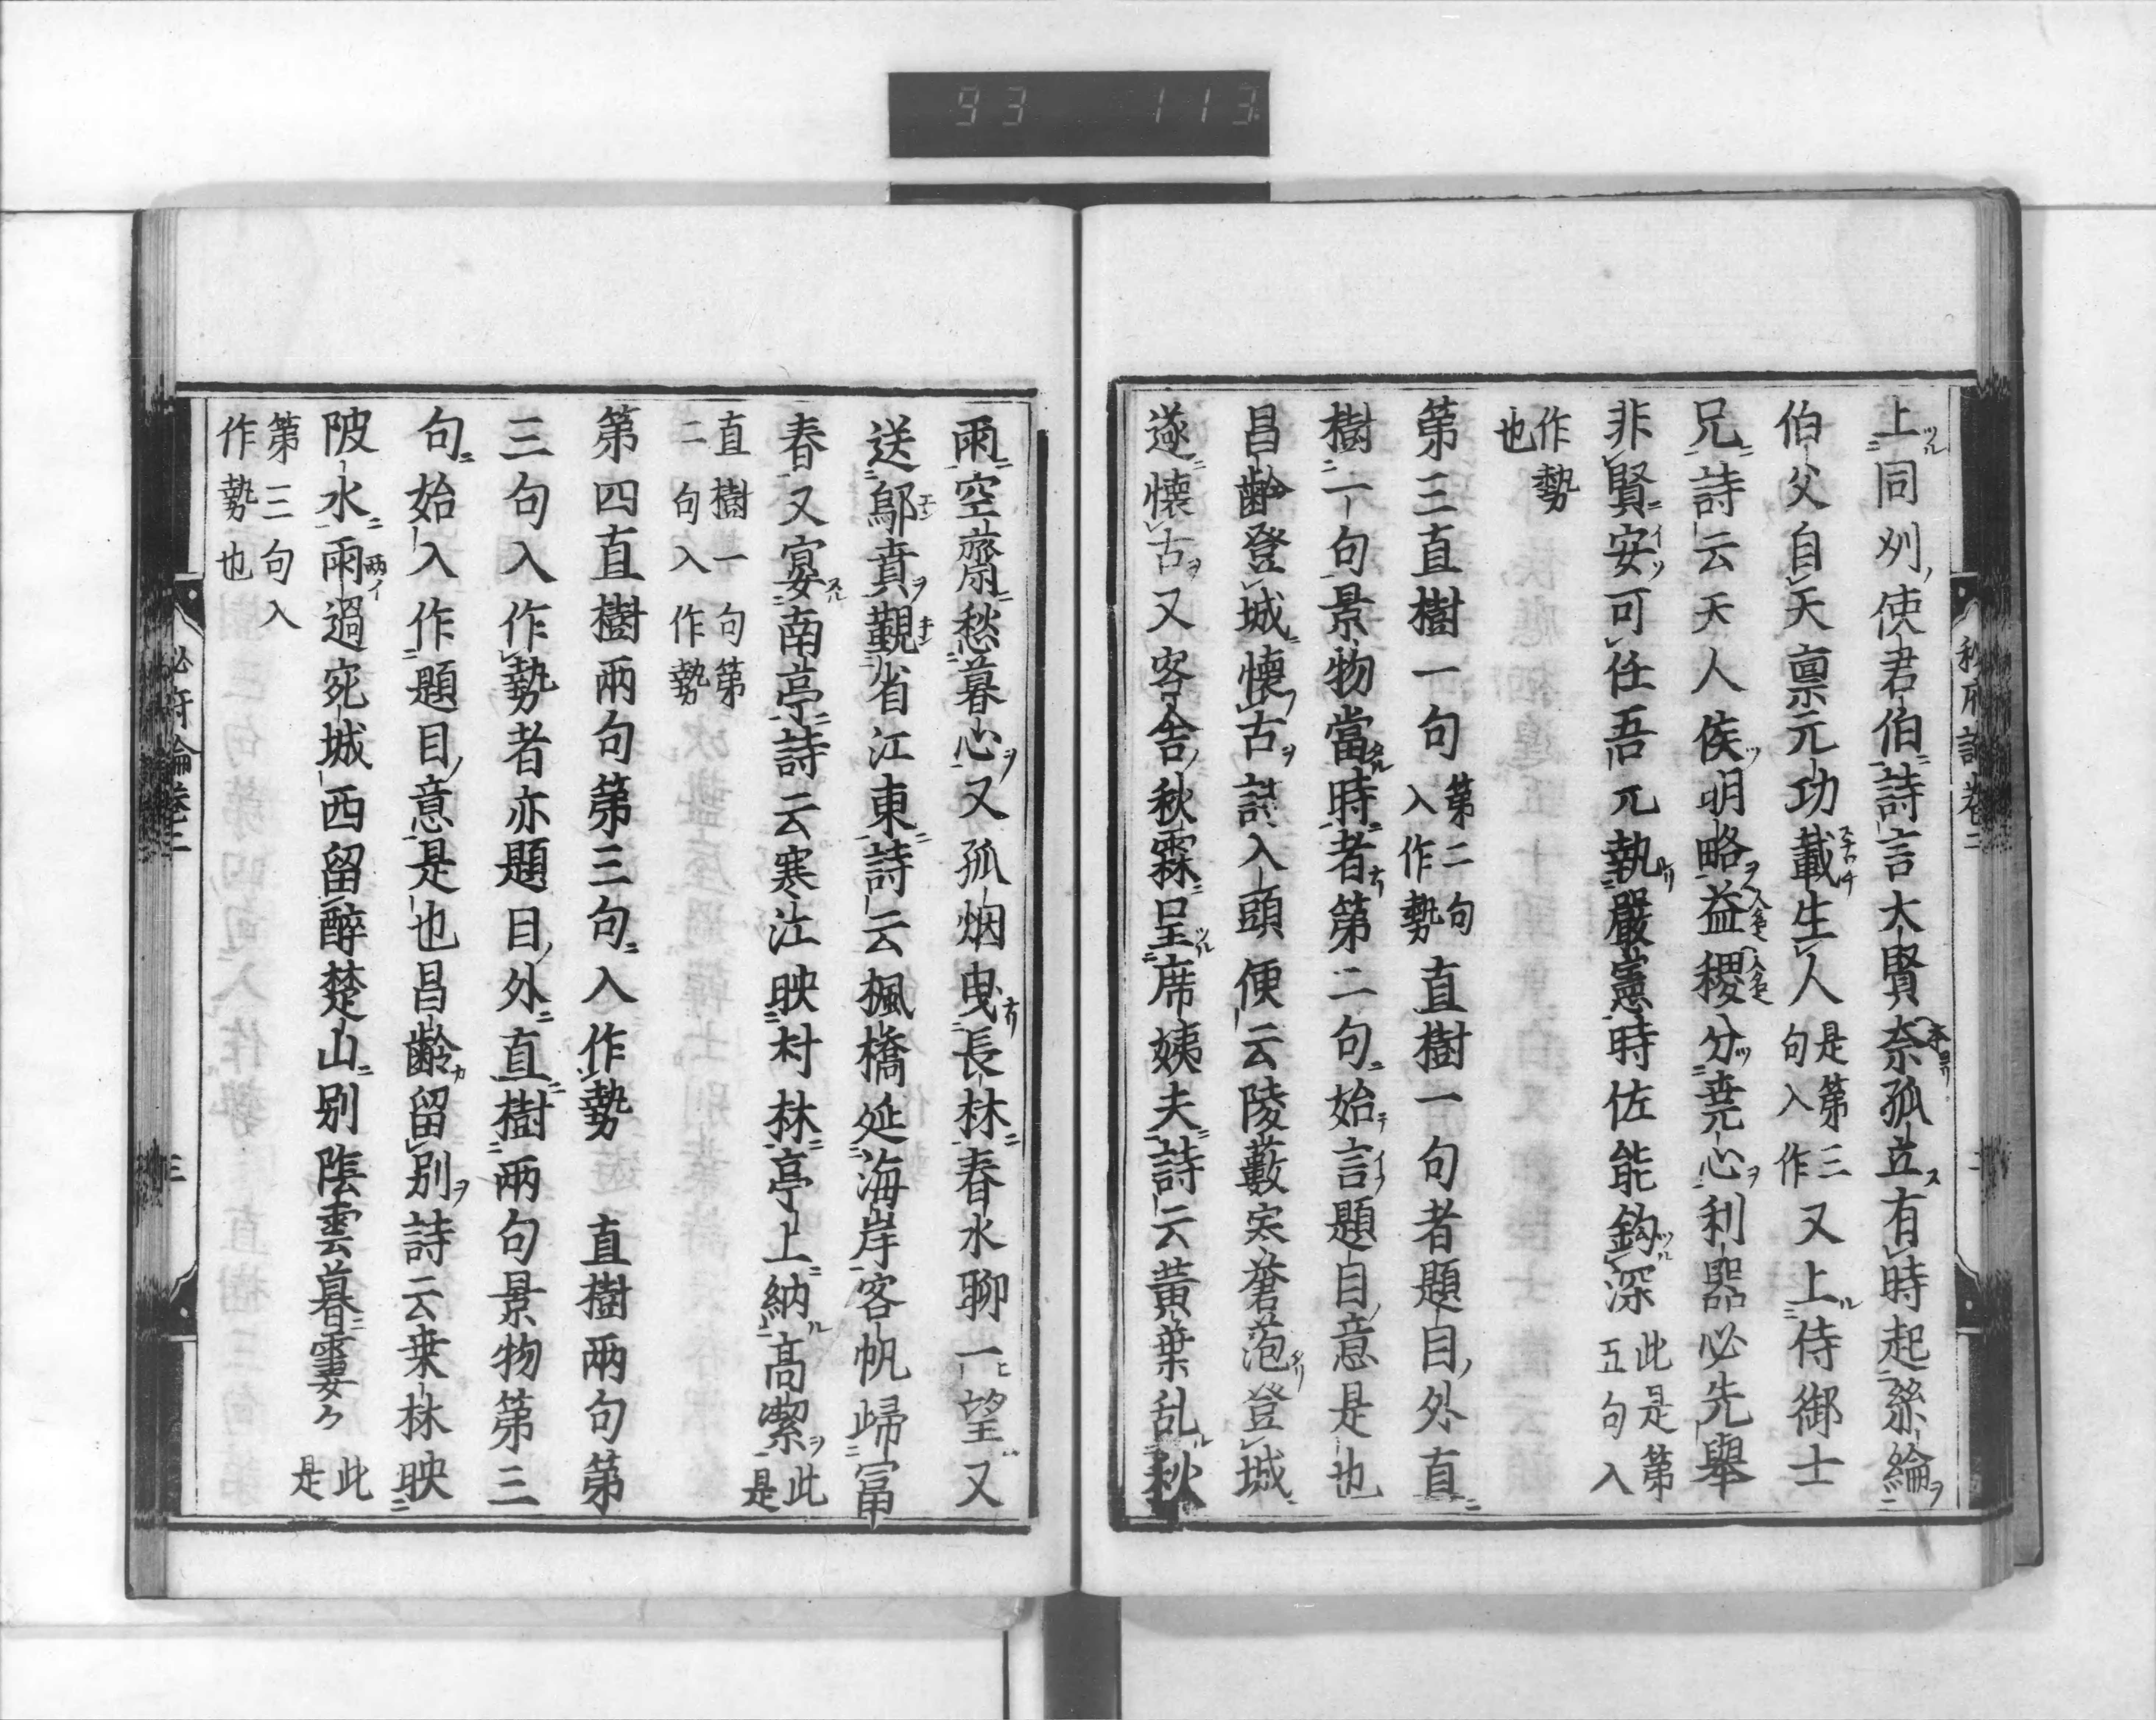 93 113
秘府論卷二
上同刕使君伯詩言大賢奈孤立有時起絲綸
伯父自天禀元功載生人是第三句入作又上侍御士
兄詩云天人俟明略益稷分尭心利噐必先舉
非賢安可任吾兀執嚴憲時佐能鈎深此是第五句入
作勢也
第三直樹一句第二句入作勢直樹一句者題目外直
樹一句景物當時者第二句始言題目意是也
昌齡登城懷古詩入頭便云陵藪寒蒼茫登城
遂懷古又客舎秋霖呈席姨夫詩云黃葉乱秋
雨空齋愁暮心又孤烟曳長林春水聊一望又
送鄔賁覲省江東詩云楓橋延海岸客帆歸富
春又宴南亭詩云寒江映村林亭上納高潔此是
直樹一句第二句入作勢
第四直樹兩句第三句入作勢 直樹兩句第
三句入作勢者亦題目外直樹兩句景物第三
句始入作題目意是也昌齡留別詩云桒林映
陂水雨過宛城西留醉楚山別陰雲暮霋々此是
第三句入作勢也
秘府論卷二 三